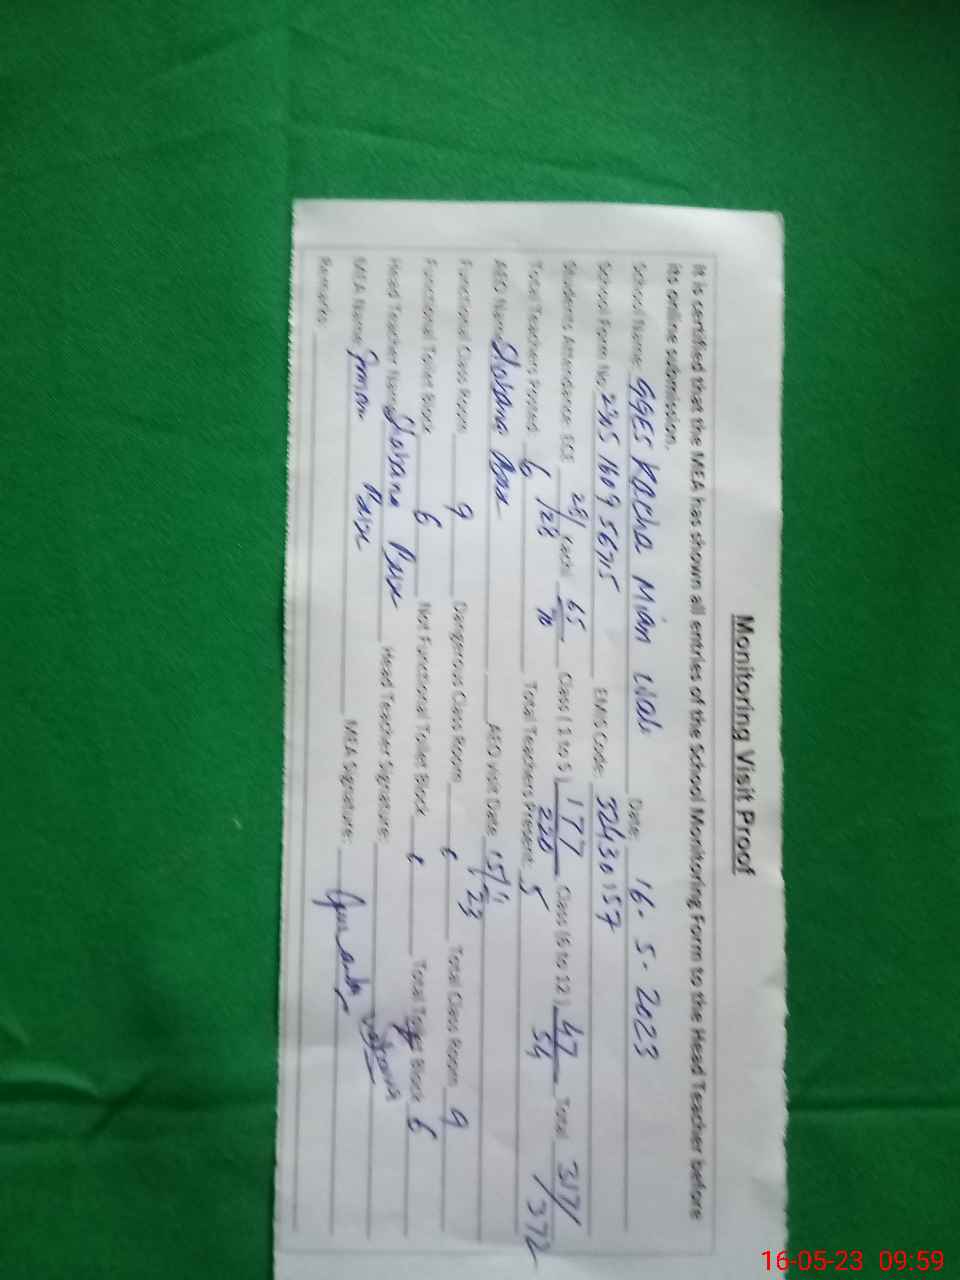 Monitoring Visit Proof
It is certified that the MEA has shown all entries of the School Monitoring Form to the Head Teacher before
its online submission.
School Name: GGES Kacha Mian Wali Date: 16-5-2023
School Form No: EMIS Code: 32430157
Students Attendance: ECE 28/28 Kachi 65/70 Class (1 to 5) 177/220 Class (6 to 12) 47/54 Total 317/372
Total Teachers Posted: 6 Total Teachers Present: 5
AEO Name: Shabana AEO Visit Date:
Functional Class Room 9 Dangerous Class Room Total Class Room 9
Functional Toilet Block 6 Not Functional Toilet Block Total Toilet Block 6
Head Teacher Name: Shabana Head Teacher Signature:
MEA Name: MEA Signature:
Remarks:
16-05-23 09:59